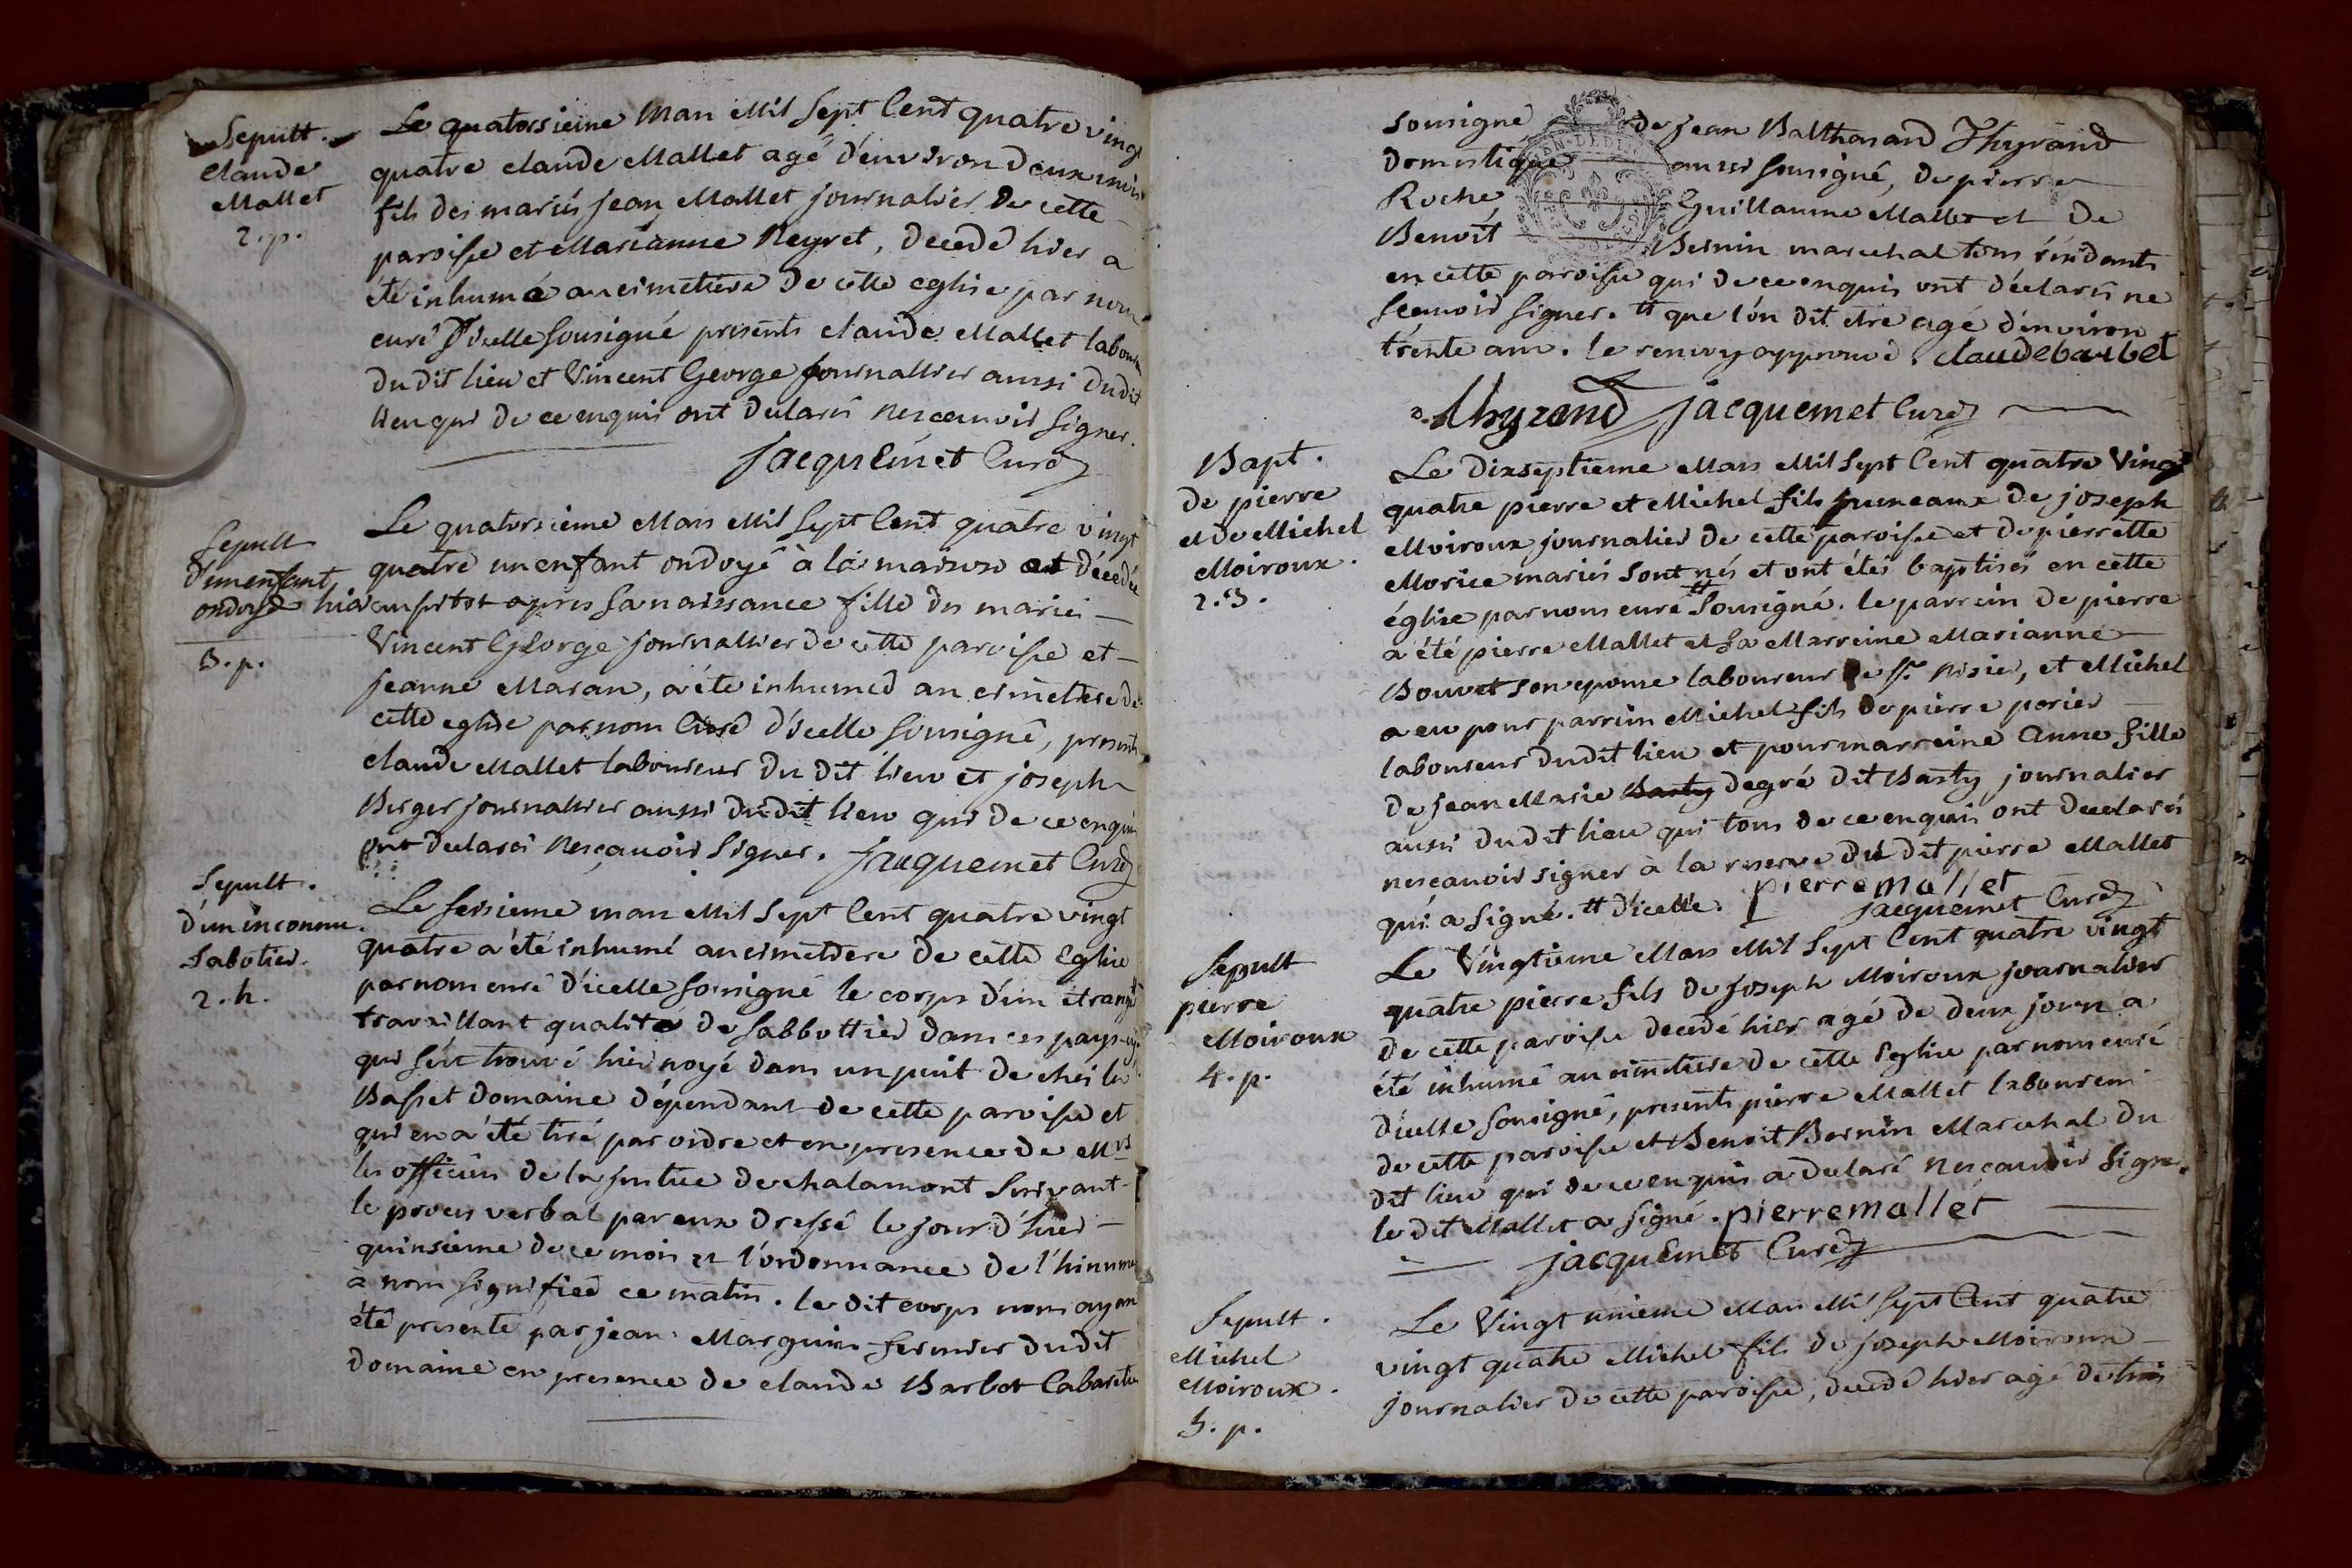 Sepult.
Claude
Mallet
2.p.
Le quatorsieme Mars Mil Sept Cent quatre vingt
quatre claude Mallet agé d'environ deux mois
fils des mariés jean Mallet journalier de cette
paroisse et Marianne Neyret, decedé hier a
été inhumé au cimetiere de cette eglise par nous
curé d'icelle sousigné presents claude Mallet laboureur
du dit lieu et Vincent George journallier aussi dudit
lieu qui de ce enquis ont declarés ne scauoir signer.
Jacquemet Curé
Sepult
d'un enfant
ondoyé
3.p.
Le quatorsieme Mars Mil Sept Cent quatre vingt
quatre un enfant ondoyé à la maison et décedée
hier aussitot apres sa naissance fille des mariés
Vincent George journallier de cette paroisse et
jeanne Maran, a été inhumée au cimetiere de
cette eglise par nous Curé d'icelle sousigné, presents
claude Mallet laboureur du dit lieu et joseph
Berger journallier aussi dudit lieu qui de ce enquis
ont declarés ne sçauoir signer. Jacquemet Curé
Sepult.
d'un inconnu
Sabotier.
2.h.
Le seisieme mars Mil Sept Cent quatre vingt
quatre a été inhumé au cimetiere de cette Eglise
par nous curé d'icelle sousigné le corps d'un étranger
travaillant qualité de sabbottier dans ces pays
qui s'est trouvé hier noyé dans un puit de chés le
Basset domaine dépendant de cette paroisse et
qui en a été tiré par ordre et en presence de Mrs
les officiers de la justice de chalamont suivant
le proces verbal par eux dressé le jour d'hier
quinsieme de ce mois et l'ordonnance de l'hinumer
à nous signifiée ce matin. le dit corps nous ayant
été presenté par jean Marguin fermier dudit
domaine en presence de claude Barbet Cabaretier
sousigné de jean Balthasard Thyrand
domestique aussi sousigné, de pierre
Roche Guillaume Mallet et de
Benoît Bernin marechal tous résidants
en cette paroisse qui de ce enquis ont déclarés ne
scauoir signer. # que l'on dit etre agé d'environ
trente ans. le renvoy approuvé. claude barbet
Thyrand jacquemet Curé
Bapt.
de pierre
et de Michel
Moiroux.
2.3.
Le dixseptieme Mars Mil Sept Cent quatre Vingt
quatre pierre et Michel fils jumeaux de joseph
Moiroux journalier de cette paroisse et de pierrette
Morice mariés sont nés et ont étés baptisés en cette
église par nous curé # sousigné. le parrein de pierre
a été pierre Mallet et sa Marreine Marianne
Bouvet son epouse laboureur de St. Nisier, et Michel
a eu pour parrein Michel fils de pierre perier
laboureur dudit lieu et pour marreine Anne fille
de jean Marie Basty degré dit Basty journalier
aussi dudit lieu qui tous de ce enquis ont declarés
ne sçauoir signer à la reserve du dit pierre Mallet
qui a signé. # d'icelle. pierre mallet
jacquemet Curé
Sepult
pierre
Moiroux
4.p.
Le Vingtieme Mars Mil Sept Cent quatre vingt
quatre pierre fils de joseph Moiroux journalier
de cette paroisse decedé hier agé de deux jours a
été inhumé au cimetiere de cette Eglise par nous curé
d'icelle sousigné, presents pierre Mallet laboureur
de cette paroisse et Benoit Bernin Marechal du
dit lieu qui de ce enquis a declaré ne sçauoir signer
le dit Mallet a signé. pierre mallet
jacquemet Curé
Sepult.
Michel
Moiroux.
5.p.
Le Vingt unieme Mars Mil Sept Cent quatre
vingt quatre Michel fils de joseph Moiroux
journalier de cette paroisse, decedé hier agé de trois